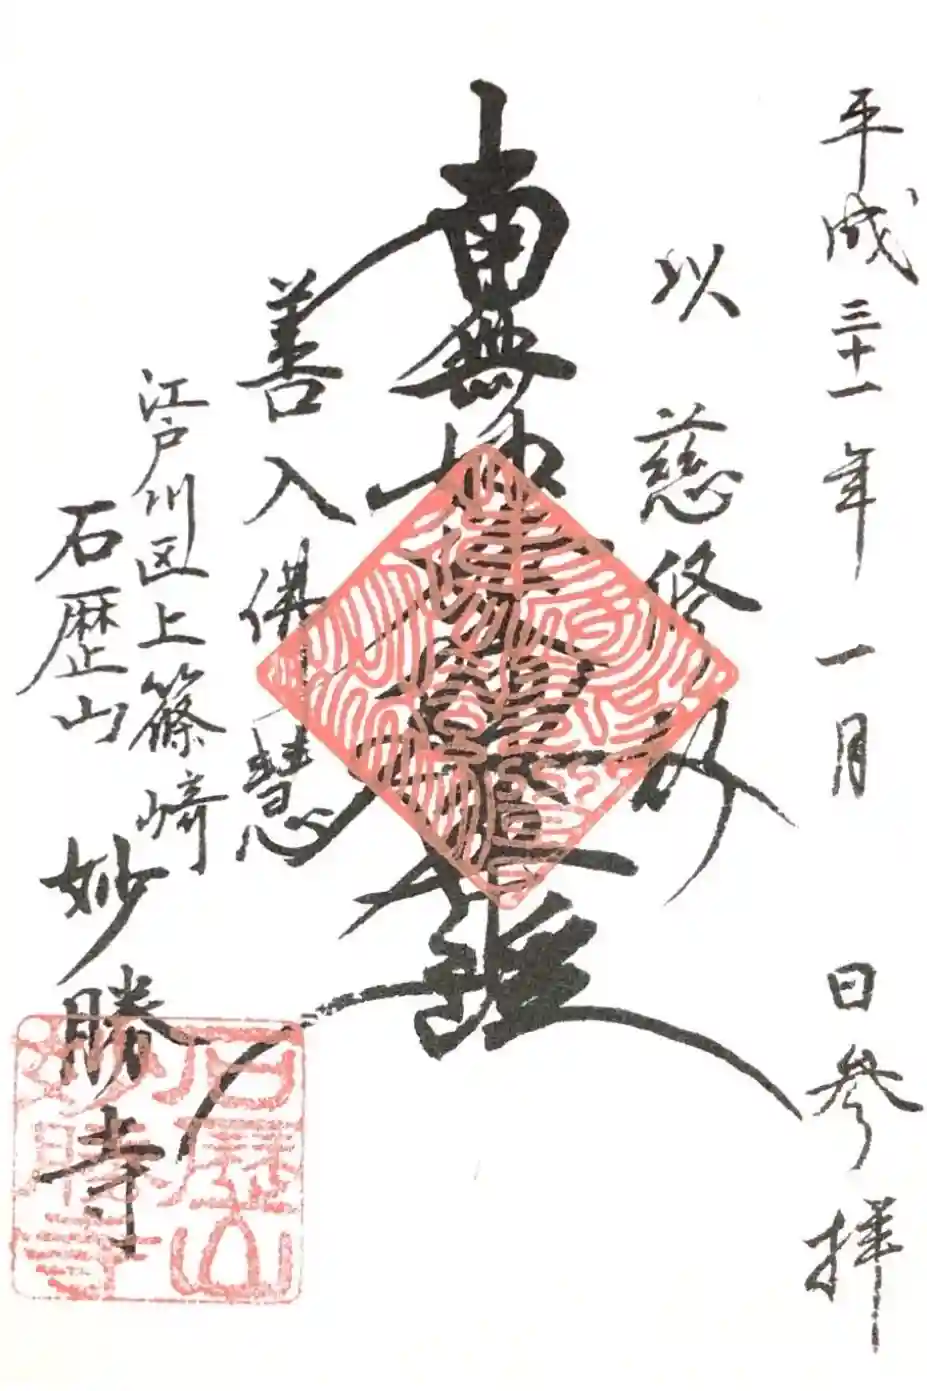 平成三十一年一月 日参拝
以慈修身
南無妙法蓮華経
善入佛慧
江戸川区上篠崎
石歴山 妙勝寺
石歴山
妙勝寺